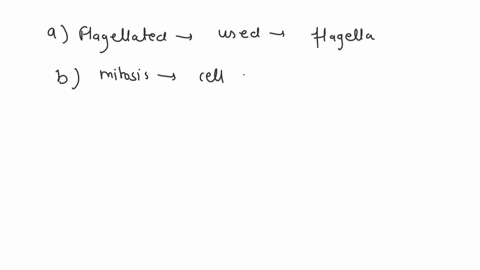 a) Flagellated → used → flagella
b) mitosis → cell